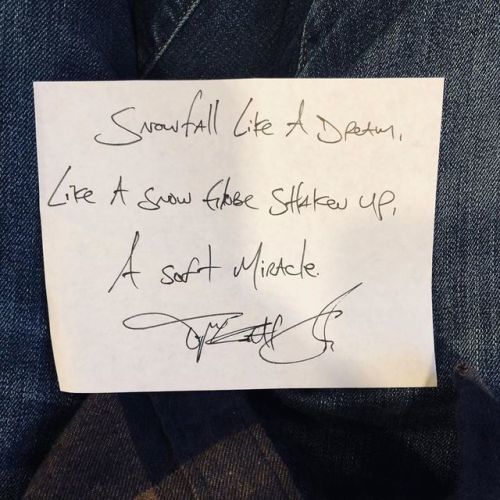 Snowfall Like A Dream,
Like A Snow Globe Shaken Up,
A Soft Miracle.